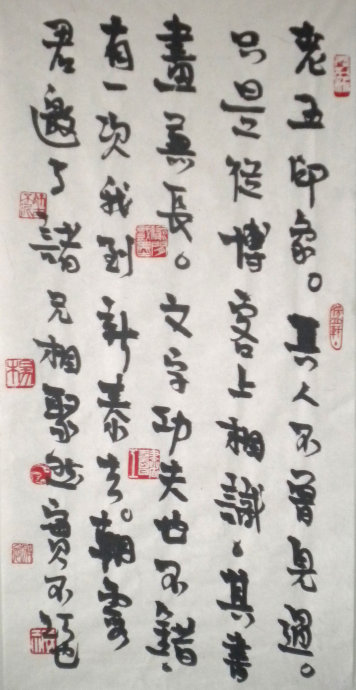 老五印象。真人不曾見過。
只是從博客上相識。其書
畫兼長。文字功夫也不錯
有一次我到新泰去。朝露
君邀了諸兄相聚